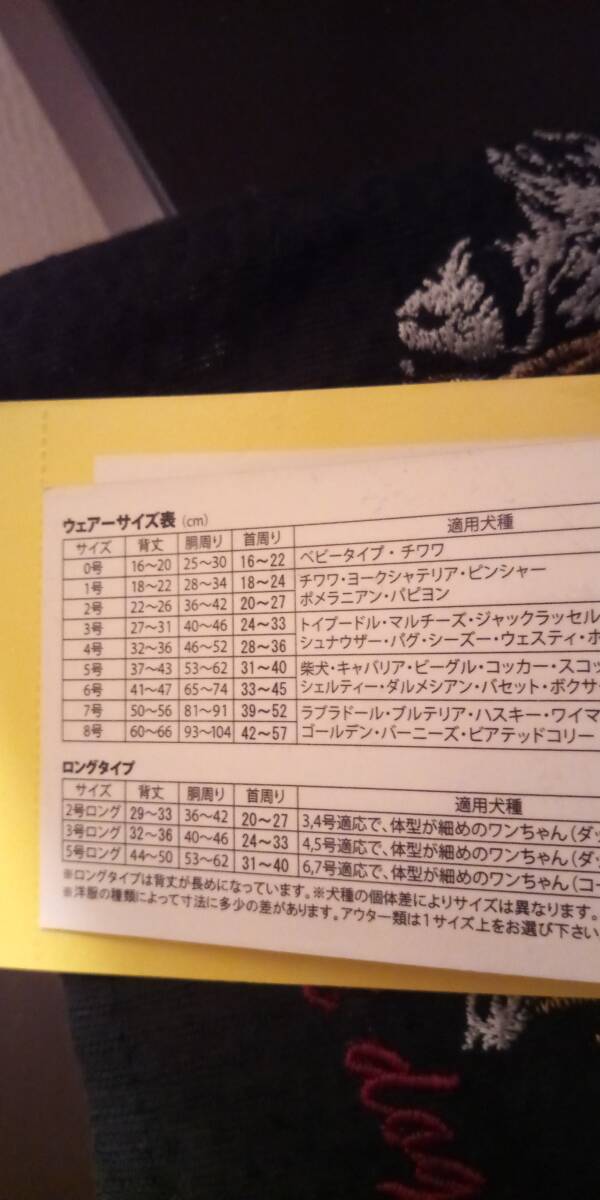 ウェアーサイズ表 (cm)
サイズ 背丈 胴周り 首周り 適用犬種
0号 16～20 25～30 16～22 ベビータイプ・チワワ
1号 18～22 28～34 18～24 チワワ・ヨークシャテリア・ピンシャー
2号 22～26 36～42 20～27 ポメラニアン・パピヨン
3号 27～31 40～46 24～33 トイプードル・マルチーズ・ジャックラッセル
4号 32～36 46～52 28～36 シュナウザー・パグ・シーズー・ウェスティ・ボ
5号 37～43 53～62 31～40 柴犬・キャバリア・ビーグル・コッカー・スコッ
6号 41～47 65～74 33～45 シェルティー・ダルメシアン・バセット・ボクサ
7号 50～56 81～91 39～52 ラブラドール・ブルテリア・ハスキー・ワイマ
8号 60～66 93～104 42～57 ゴールデン・バーニーズ・ビアテッドコリー
ロングタイプ
サイズ 背丈 胴周り 首周り 適用犬種
2号ロング 29～33 36～42 20～27 3,4号適応で、体型が細めのワンちゃん（ダッ
3号ロング 32～36 40～46 24～33 4,5号適応で、体型が細めのワンちゃん（ダッ
5号ロング 44～50 53～62 31～40 6,7号適応で、体型が細めのワンちゃん（コー
※ロングタイプは背丈が長めになっています。※犬種の個体差によりサイズは異なります。
※洋服の種類によって寸法に多少の差があります。アウター類は1サイズ上をお選び下さい
dog